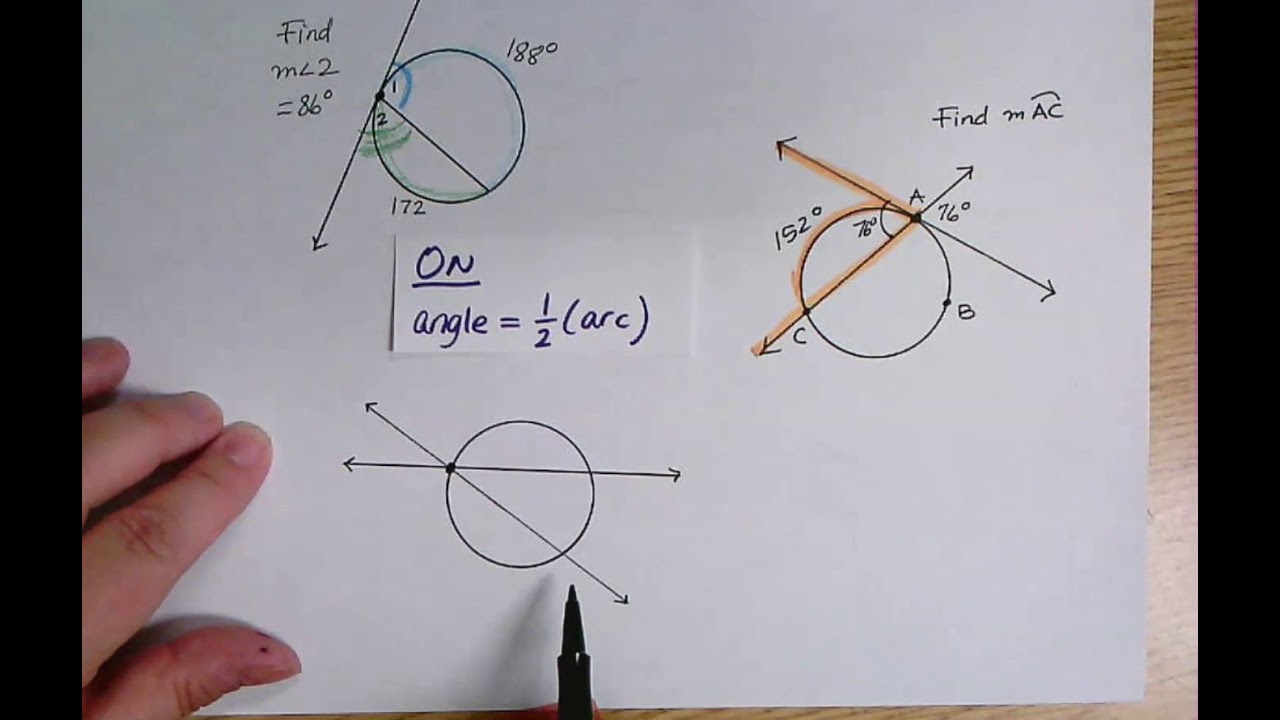 Find
m∠2
= 86°
1
2
188°
172
ON
angle = 1/2 (arc)
Find m AC
A
76°
76°
152°
C
B